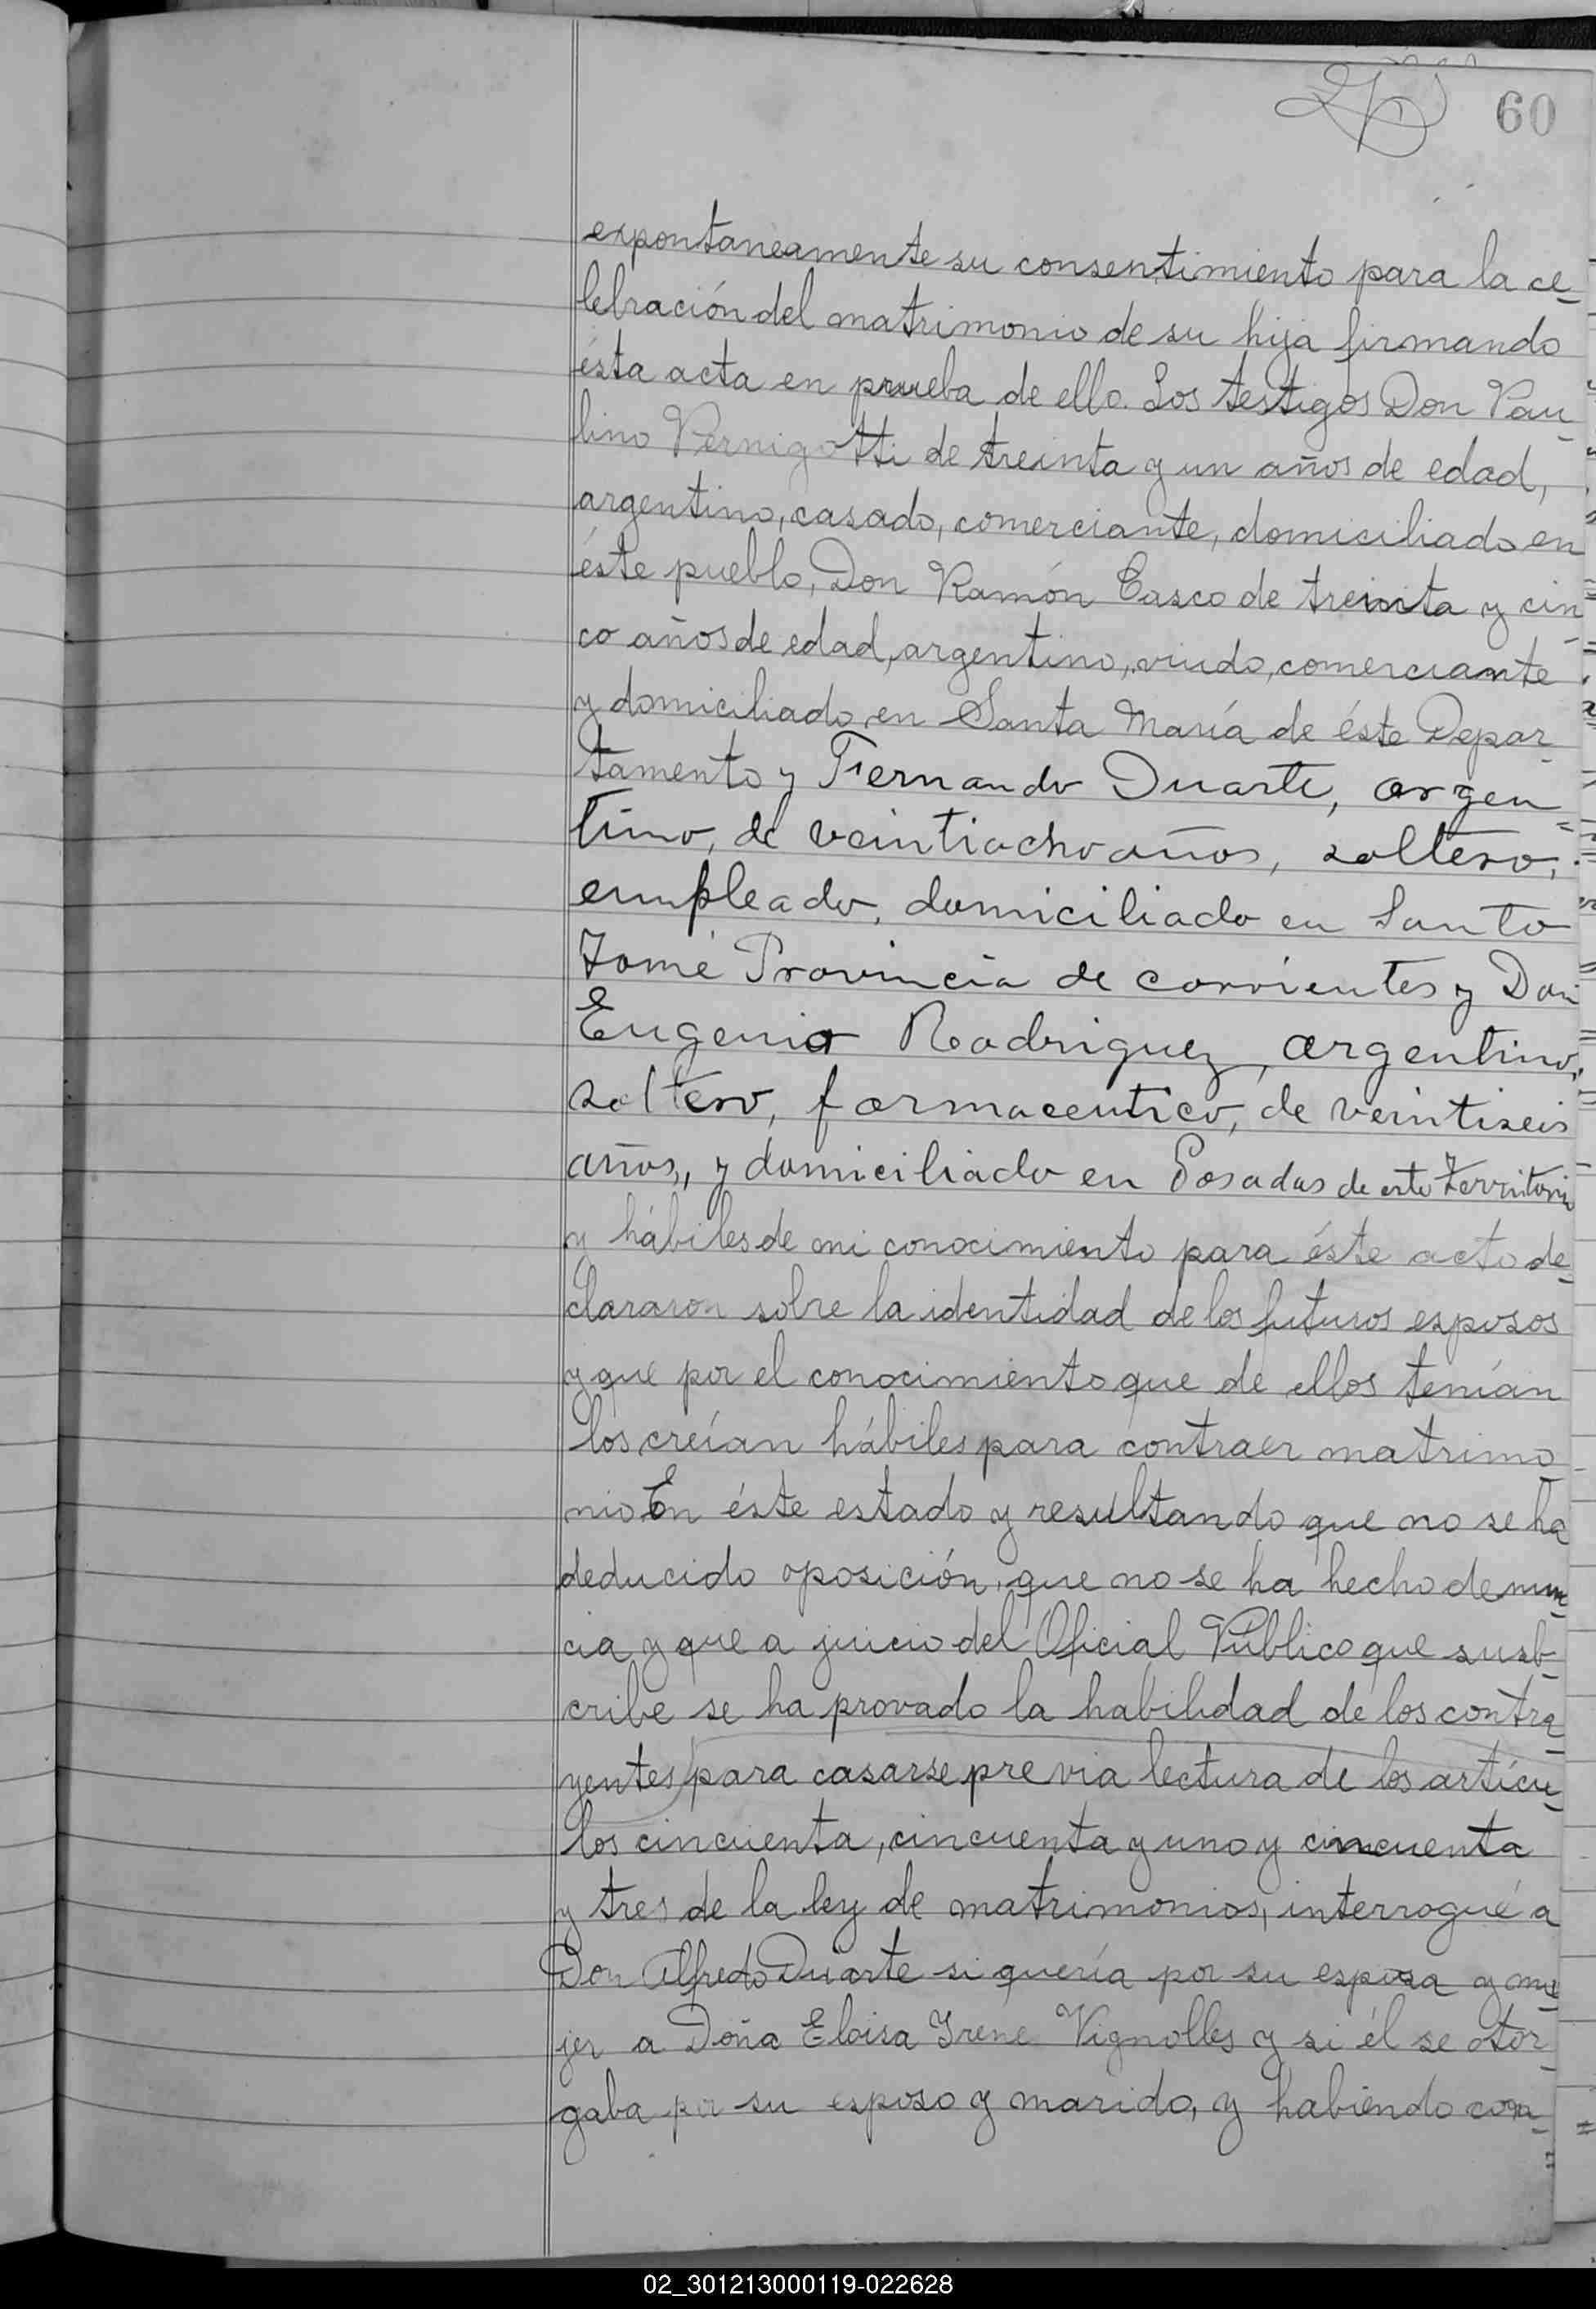 60
expontaneamente su consentimiento para la ce-
lebración del matrimonio de su hija firmando
ésta acta en prueba de ello. Los testigos Don Pau-
lino Pernigotti de treinta y un años de edad,
argentino, casado, comerciante, domiciliado en
éste pueblo, Don Ramón Casco de treinta y cin-
co años de edad, argentino, viudo, comerciante
y domiciliado en Santa María de éste Depar-
tamento y Fernando Duarte, argen=
tino, de veintiocho años, soltero,
empleado, domiciliado en Santo
Tomé Provincia de Corrientes y Don
Eugenio Rodriguez, argentino,
soltero, farmaceutico, de veintiseis
años, y domiciliado en Posadas de este Territorio
y hábiles de mi conocimiento para éste acto de-
clararon sobre la identidad de los futuros esposos
y que por el conocimiento que de ellos tenían
los creían hábiles para contraer matrimo-
nio En éste estado y resultando que no se ha
deducido oposición, que no se ha hecho denun-
cia y que a juicio del Oficial Público que susb-
cribe se ha provado la habilidad de los contra-
yentes para casarse previa lectura de los artícu-
los cincuenta, cincuenta y uno y cincuenta
y tres de la ley de matrimonios, interrogué a
Don Alfredo Duarte si quería por su esposa y mu-
jer a Doña Eloisa Irene Vignolles y si él se otor-
gaba por su esposo y marido, y habiendo con-
02_301213000119-022628